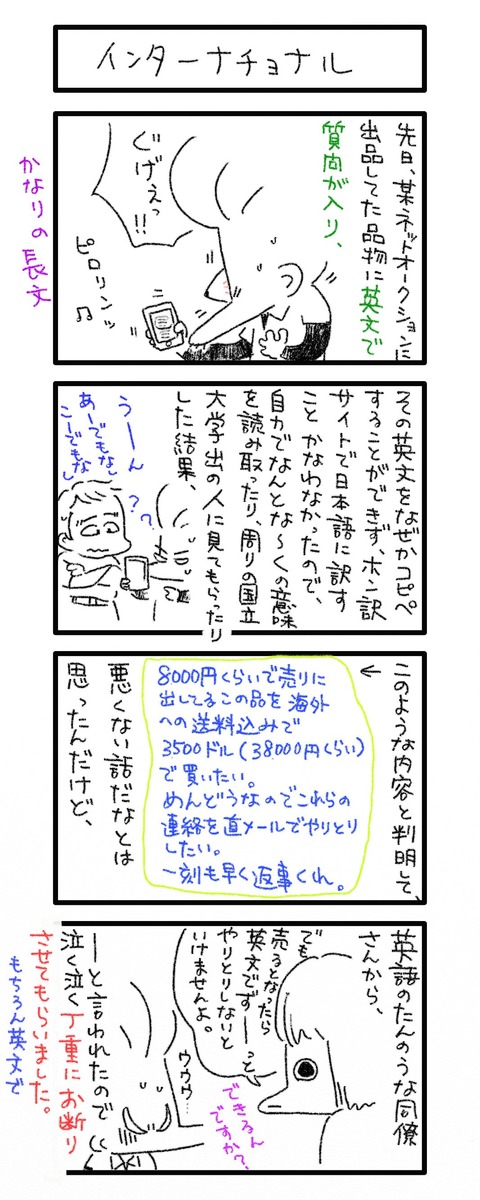 インターナチョナル
先日、某ネットオークションに
出品してた品物に英文で
質問が入り、
ぐげぇっ!!
ピロリンッ♫
かなりの長文
その英文をなぜかコピペ
することができず、ホン訳
サイトで日本語に訳す
ことかなわなかったので、
自力でなんとな〜くの意味
を読み取ったり、周りの国立
大学出の人に見てもらったり
した結果、
うーーん
あーでもなし
こーでもなし
??
このような内容と判明して、
←
8000円くらいで売りに
出してるこの品を海外
への送料込みで
3500ドル(38000円くらい)
で買いたい。
めんどうなのでこれらの
連絡を直メールでやりとり
したい。
一刻も早く返事くれ。
悪くない話だなとは
思ったんだけど、
英語のたんのうな同僚
さんから、
でも
売るとなったら
英文でずーーっと
やりとりしないと
いけませんよ。
できるん
ですか?
ウウウ…
ーーと言われたので
泣く泣く丁重にお断り
させてもらいました。
もちろん英文で